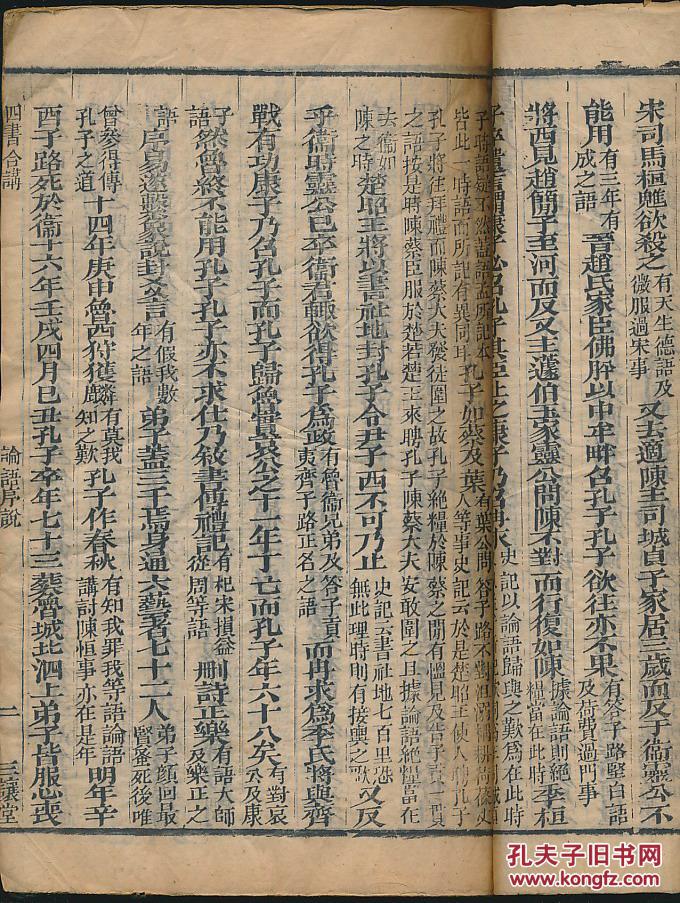 宋司馬桓魋欲殺之有天生德語及微服過宋事又去適陳主司城貞子家居三歲而反于衛靈公不
能用有三年有成之語晉趙氏家臣佛肸以中牟畔召孔子孔子欲往亦不果有答子路堅白語及荷蕢過門事
將西見趙簡子至河而反又主蘧伯玉家靈公問陳不對而行復如陳據論語則絕糧當在此時季桓
子卒遺言謂康子必召孔子其臣止之康子乃召冉求史記以論語歸與之歎為在此時
孔子如蔡及葉有葉公問答子路不對沮溺耦耕荷蓧丈人等事史記云於是楚昭王使人聘孔子
孔子將往拜禮而陳蔡大夫發徒圍之故孔子絕糧於陳蔡之間有慍見及告子貢一貫
之語按是時陳蔡臣服於楚若楚王來聘孔子陳蔡大夫安敢圍之且據論語絕糧當在
去衛如陳之時楚昭王將以書社地封孔子令尹子西不可乃止史記云書社地七百里恐無此理時則有接輿之歌又反
乎衛時靈公已卒衛君輒欲得孔子為政有魯衛兄弟及答子貢夷齊子路正名之語而冉求為季氏將與齊
戰有功康子乃召孔子而孔子歸魯實哀公之十一年丁巳而孔子年六十八矣有對哀公及康
子語然魯終不能用孔子孔子亦不求仕乃敘書傳禮記有杞宋損益從周等語刪詩正樂有語大師及樂正之
語序易彖繫象說卦文言有假我數年之語弟子蓋三千焉身通六藝者七十二人弟子顏回最賢蚤死後唯
曾參得傳孔子之道十四年庚申魯西狩獲麟有莫我知之歎孔子作春秋有知我罪我等語論語講討陳恒事亦在是年明年辛
酉子路死於衛十六年壬戌四月己丑孔子卒年七十三葬魯城北泗上弟子皆服心喪
四書合講
論語序說
二
三讓堂
孔夫子旧书网
www.kongfz.com